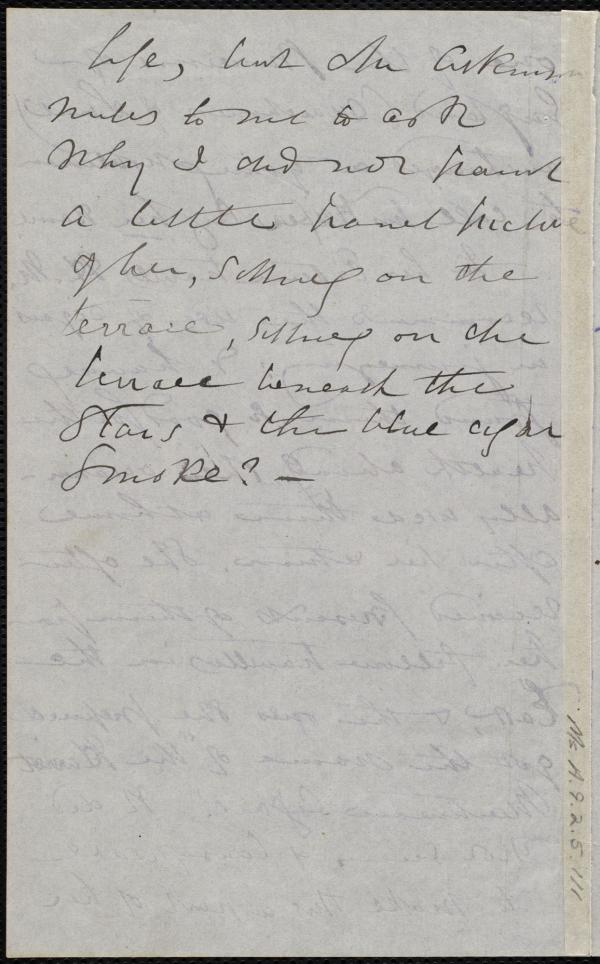 life, but Mr Atkinson
writes to me to ask
Why I did not paint
a little panel picture
of her, sitting on the
terrace, sitting on the
terrace beneath the
Stars & the blue cigar
Smoke? —
Ms A.9.2.5.111